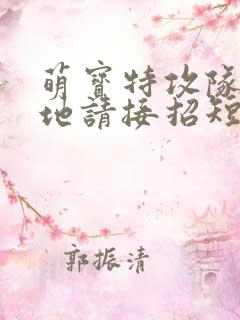 萌寳特攻隊
地請接招短
郭振清